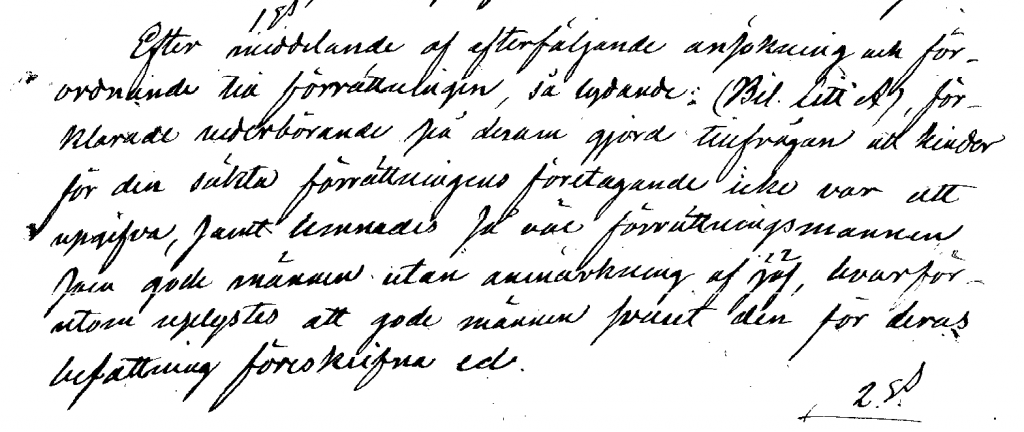 1 §
Efter meddelande af efterföljande ansökning och för-
ordnande till förrättningen, så lydande: (Bil. Litt A), för-
klarade vederbörande på derom gjord tillfrågan att hinder
för den sökta förrättningens företagande icke var att
uppgifva, samt lemnades så väl förrättningsmannen
som gode männen utan anmärkning af jäf, hvarför-
utom upplystes att gode männen svurit den för deras
befattning föreskrifna ed.
2 §.